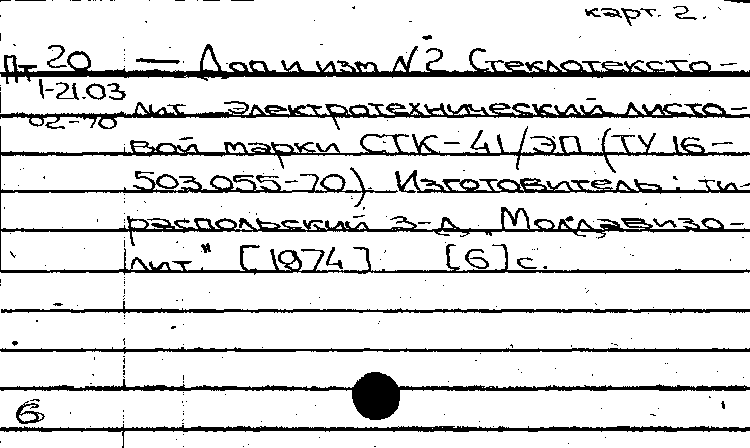 карт. 2.
Пт 20 — Доп и изм № 2 Стеклотексто-
1-21.03
лит электротехнический листо-
02-70
вой марки СТК-41/ЭП (ТУ 16-
503.055-70). Изготовитель: ти-
распольский з-д „Молдавизо-
лит." [1974]. [6] с.
6